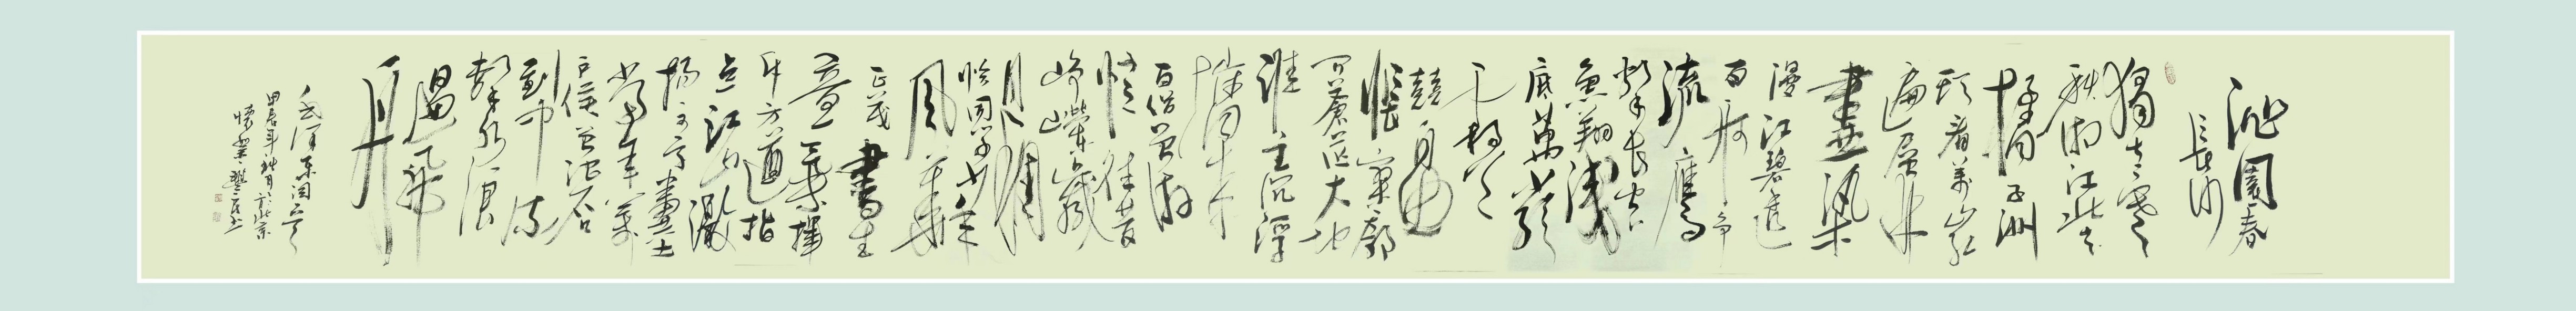 沁園春
長沙
獨立寒
秋湘江北去
橘子洲
頭看萬山紅
遍層林
盡染
漫江碧透
百舸爭
流鷹
擊長空
魚翔淺
底萬類
霜天
競自由
悵寥廓
問蒼茫大地
誰主沉浮
攜來
百侶曾游
憶往昔
崢嶸歲
月稠
恰同學少年
風華
正茂書生
意氣揮
斥方遒指
点江山激
揚文字糞土
當年萬
戶侯曾記否
到中流
擊水浪
遏飛
舟
毛澤東詞一首
甲辰年秋月於北京